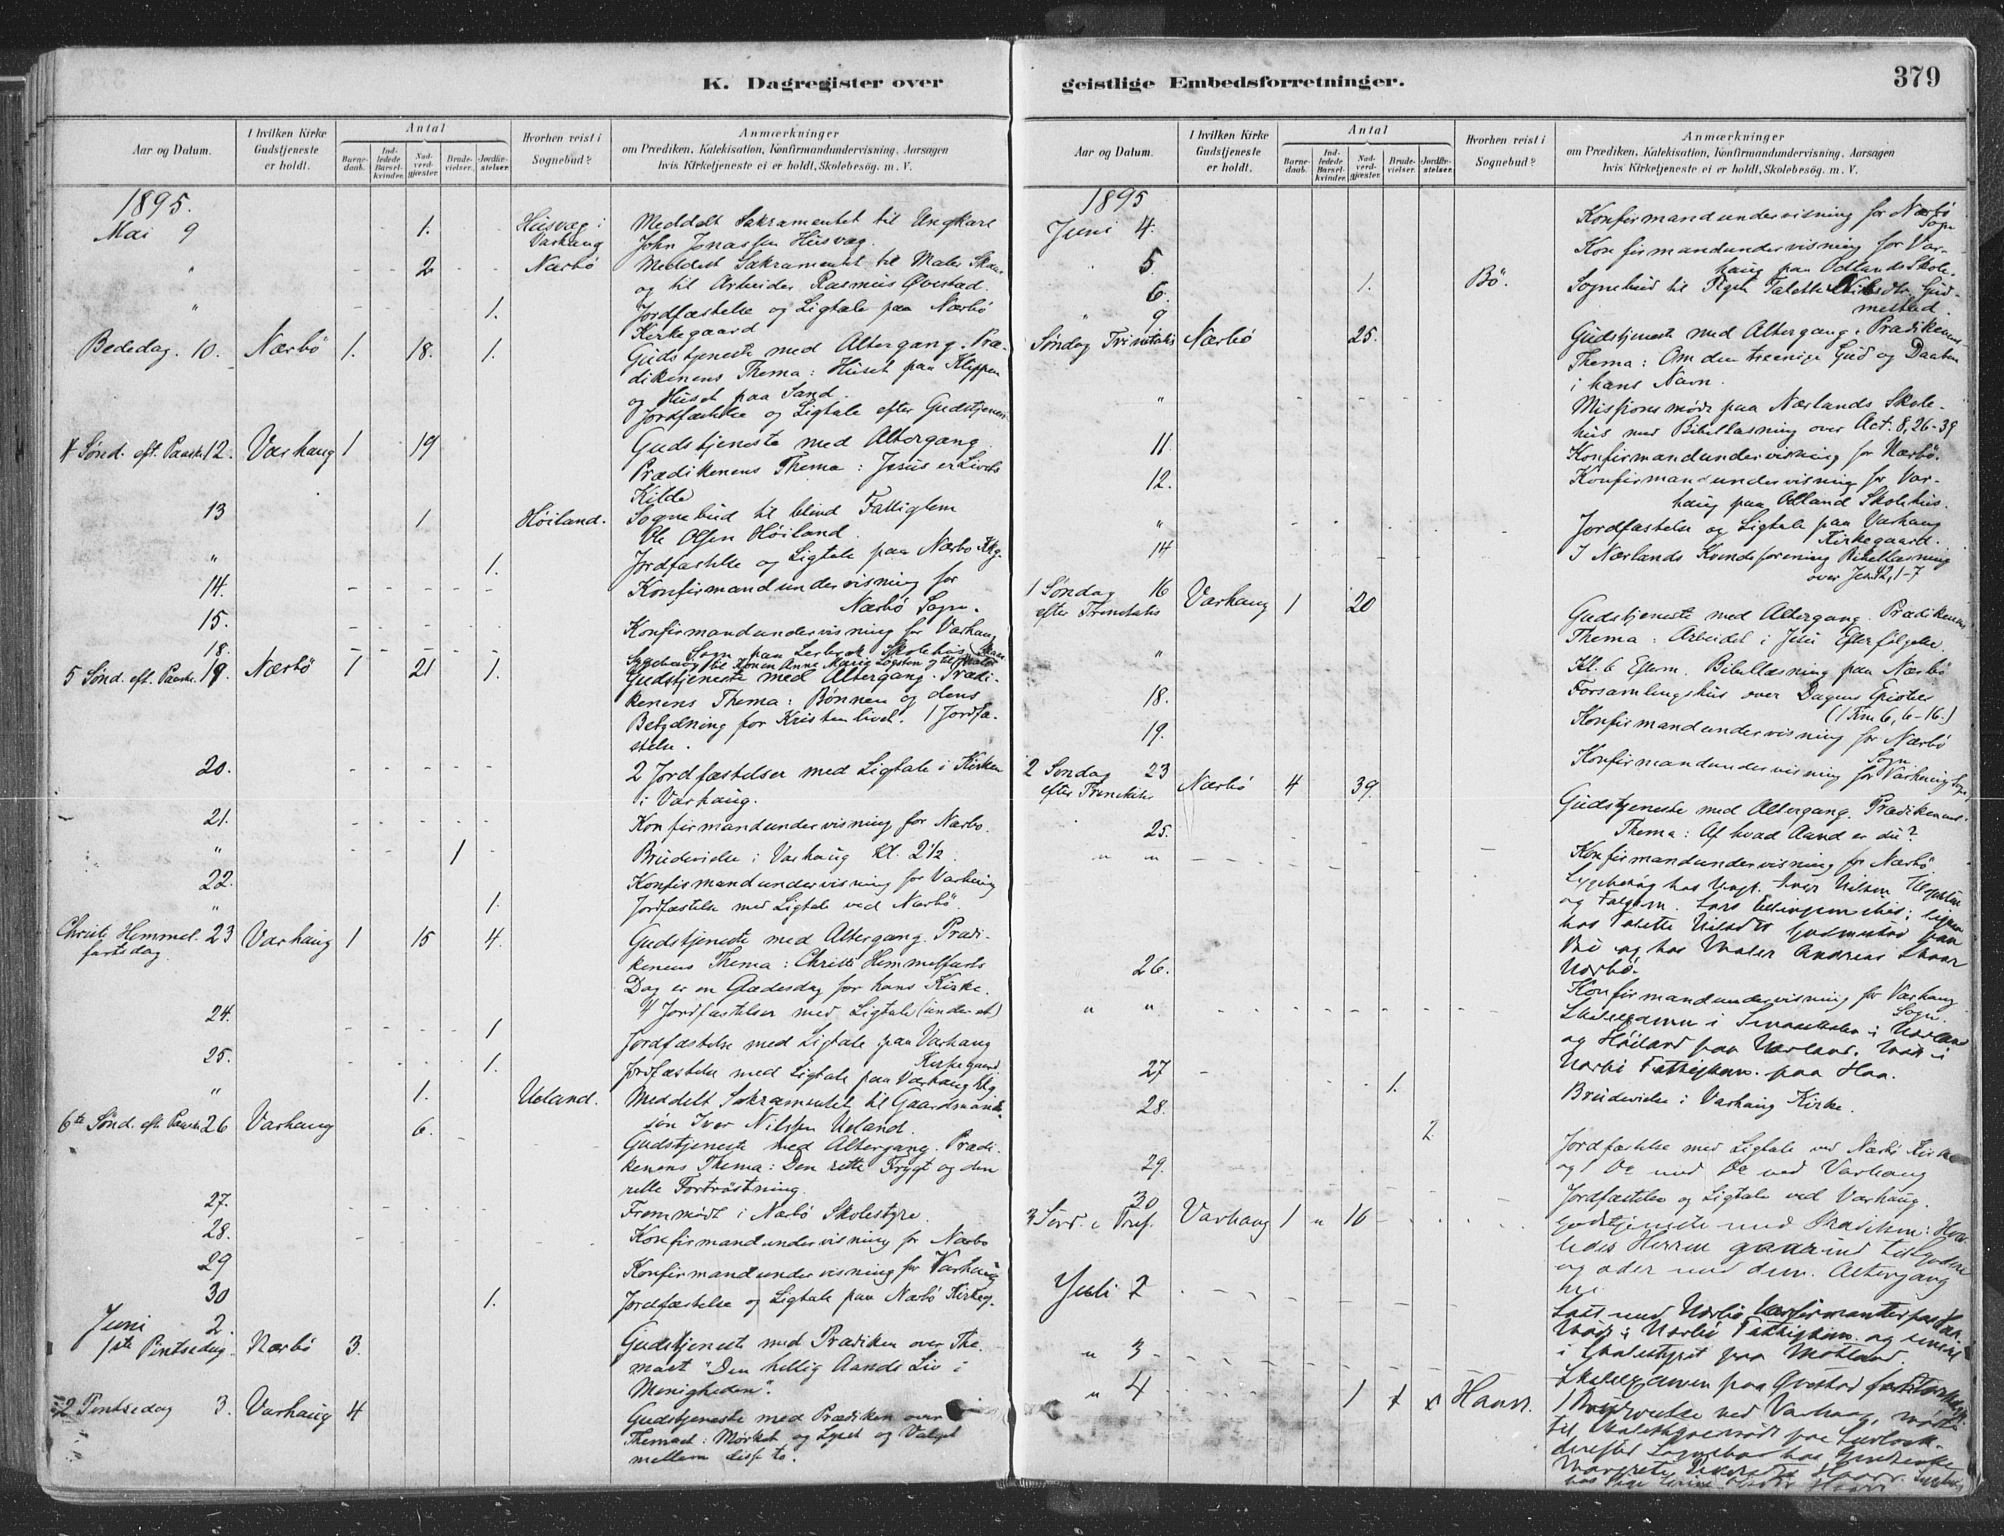 K. Dagregister over
Aar og Datum.
I hvilken Kirke Gudstjeneste er holdt.
Antal
Barnedaab.
Indledede Barselkvinder.
Nadverdgjæster.
Brudevielser.
Jordfæstelser.
Hvorhen reist i Sognebud?
Anmærkninger
om Prædiken, Katekisation, Konfirmandundervisning, Aarsagen
hvis Kirketjeneste ei er holdt, Skolebesøg. m. V.
1895.
Mai 9 1. Husvæg i Varhaug Meddelt Sakramentet til Ungkarl
John Jonassen Husvæg.
" 2 Nærbö Meddelt Sakramentet til Maler Skaar
og til Arbeider Rasmus Øvestad.
" 1. Jordfæstelse og Ligtale paa Nærbö
Kirkegaard
Bededag. 10. Nærbö 1. 18. 1. Gudstjeneste med Altergang. Præ-
dikenens Thema: Huset paa Klippen
og Huset paa Sand.
1 Jordfæstelse og Ligtale efter Gudstjenesten
4 Sönd. eft. Paaske 12. Varhaug 1 19 Gudstjeneste med Altergang.
Prædikenens Thema: Jesus er Livets
Kilde
13 1 Höiland. Sognebud til blind Fattiglem
Ole Olsen Höiland.
" 1. Jordfæstelse og Ligtale paa Nærbö Kkg.
14. Konfirmandundervisning for
Nærbö Sogn.
15. Konfirmandundervisning for Varhaug
Sogn paa Skolehus
18. Sygebesøg til Konen Anna Maria og til
5 Sönd. eft. Paaske 19. Nærbö 1 21 1. Gudstjeneste med Altergang. Prædi-
kenens Thema: Bönnen og dens
Betydning for Kristenlivet. 1 Jordfæ-
stelse.
20. 2 Jordfæstelser med Ligtale i Kirken
i Varhaug.
21. Konfirmandundervisning for Nærbö.
" 1 Brudevielse i Varhaug Kl. 2½.
22. Konfirmandundervisning for Varhaug
" 1. Jordfæstelse med Ligtale ved Nærbö.
Christi Himmel- 23 Varhaug 1 15 4. Gudstjeneste med Altergang. Prædi-
fartsdag kenens Thema: Christi Himmelfarts
Dag er en Glædesdag for hans Kirke.
4 Jordfæstelser med Ligtale (under et)
24. 1 Jordfæstelse med Ligtale paa Varhaug
Kirkegaard.
25. 1. Jordfæstelse med Ligtale paa Varhaug Kkg.
" 1. Ueland. Meddelt Sakramentet til Gaardmands-
søn Iver Nilsen Ueland.
6te Sönd. eft. Paaske 26 Varhaug 6. Gudstjeneste med Altergang. Prædi-
kenens Thema: Den rette Frygt og den
rette Fortröstning.
27. Fremmödt i Nærbö Skolestyre.
28. Konfirmandundervisning for Nærbö
29 Konfirmandundervisning for Varhaug
30 1. Jordfæstelse og Ligtale paa Nærbö Kirkeg.
Juni 2.
1ste Pintsedag. Nærbö 3. Gudstjeneste med Prædiken over The-
maet "Den hellig Aands Liv i
Menigheden".
2 Pintsedag 3. Varhaug 4 Gudstjeneste med Prædiken over
Themaet: Mørket og Lyset og Valget
mellem disse to.
geistlige Embedsforretninger.
379
Aar og Datum.
I hvilken Kirke Gudstjeneste er holdt.
Antal
Barnedaab.
Indledede Barselkvinder.
Nadverdgjæster.
Brudevielser.
Jordfæstelser.
Hvorhen reist i Sognebud?
Anmærkninger
om Prædiken, Katekisation, Konfirmandundervisning, Aarsagen
hvis Kirketjeneste ei er holdt, Skolebesøg. m. V.
1895
Juni 4. Konfirmandundervisning for Nærbö
Sogn
5. Konfirmandundervisning for Var-
haug paa Odlands Skole.
6. 1. Bö. Sognebud til Pigen Talette Nilsdtr. Gud-
mestad.
" 9
Söndag Trinitatis Nærbö 25. Gudstjeneste med Altergang. Prædikenens
Thema: Om den treenige Gud og Daaben
i hans Navn.
" Missionsmöde paa Nærlands Skole-
hus med Bibellæsning over Act. 8, 26-39
11. Konfirmandundervisning for Nærbö.
12. Konfirmandundervisning for Var-
haug paa Odland Skolehus.
" Jordfæstelse og Ligtale paa Varhaug
Kirkegaard.
14 I Nærlands Kvindeforening Bibellæsning
over Jes. 42, 1-7
1 Söndag 16 Varhaug 1 20 Gudstjeneste med Altergang. Prædikenens
efter Trinitatis Thema: Arbeidet i Jesu Efterfølgelse.
" Kl. 6 Efterm. Bibellæsning paa Nærbö
Forsamlingshus over Dagens Epistel
(1 Tim 6, 6-16.)
18. Konfirmandundervisning for Nærbö
Sogn.
19. Konfirmandundervisning for Varhaug Sogn,
2 Söndag 23 Nærbö 4 39. Gudstjeneste med Altergang. Prædikenens
efter Trinitatis Thema: Af hvad Aand er du?
25. Konfirmandundervisning for Nærbö
" " Sygebesög hos Ungk. Iver Nilsen
og Lars
hos Talette Nilsdtr Gudmestad paa
Bö og hos Maler Andreas Skaar
Nærbö.
26. Konfirmandundervisning for Varhaug
Sogn.
" " Skoleexamen i Smaaskolen i Nærland
og Höiland paa Nærland. Möde i
Nærbö Fattigkom. paa Haa.
27 1. Brudevielse i Varhaug Kirke.
28. 2 Jordfæstelse med Ligtale ved Nærbö Kirke
og 1 Do med Do ved Varhaug
29. Jordfæstelse og Ligtale ved Varhaug.
30
3 Sönd. e. Tref. Varhaug 1 " 16 Gudstjeneste med Prædiken: Hvor-
ledes Herren gaar ind til Syndere
og æder med dem. Altergang
Juli 2 Læst med Nærbö Konfirmanter paa
Möde i Nærbö Fattigkom. og
i Skolestyret paa Motland.
" 3 Skoleexamen paa Qvestad
" 4 1 1 Haar. 1 Brudevielse ved Varhaug, möde
til paa
derefter Sognebud hos
Margrete Haar.
hos Pige Haar